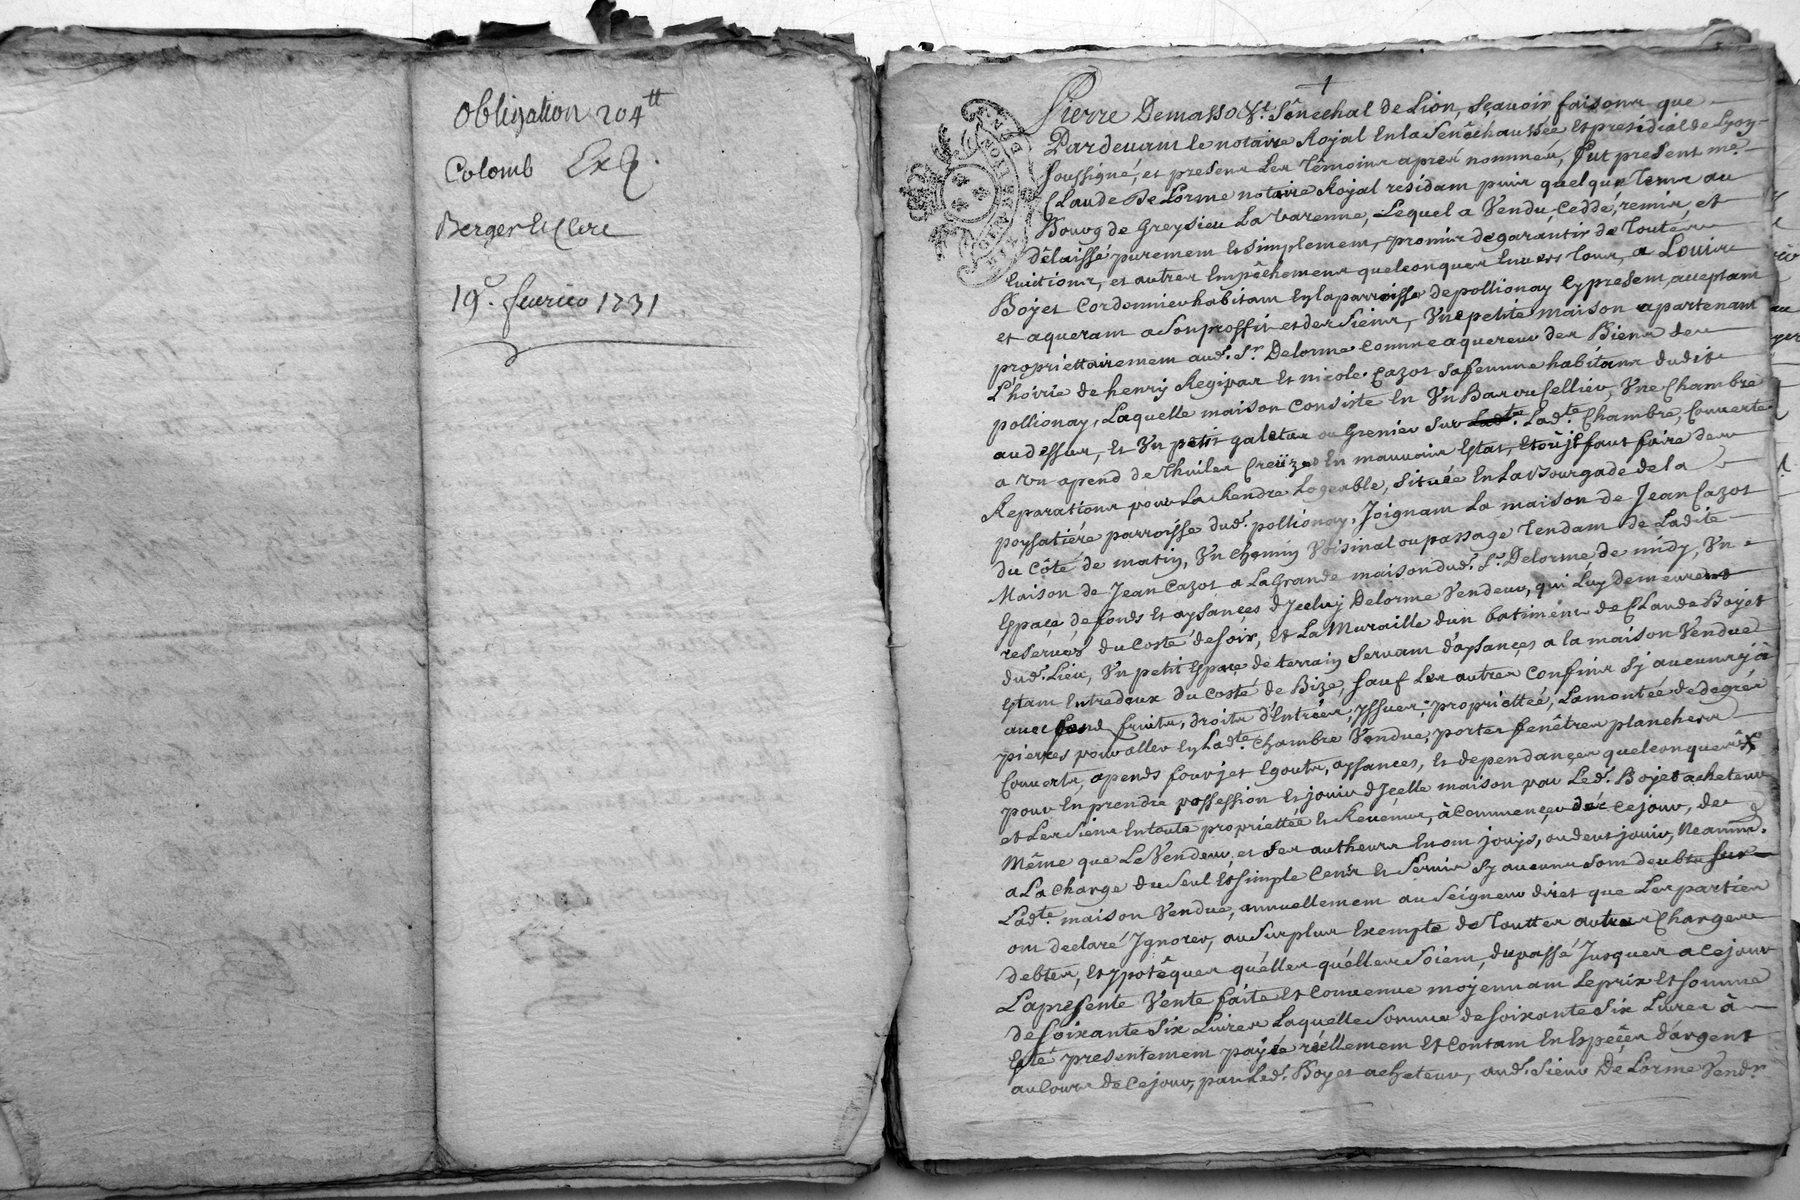 Obligation 204tt
Colomb Exp.
Berger Leclerc
19e. fevrier 1731
Pierre Demasso Sr. Sénéchal de Lion, Sçavoir faisons que
Pardevant le notaire Royal En la Senéchaussée Et presidial de Lyon
soussigné, et presens Les Témoins aprés nommés, fut present me.
Claude De Lorme notaire Royal residant puis quelque Tems au
Bourg de Greysieu La Varenne, Lequel a Vendu, Cedde, remis, et
délaissé purement Et simplement, promis de garantir de Toutes
Evictions, et autres Empéchemens quelconques Envers Tous, a Louis
Boyet Cordonnier habitant En la parroisse de pollionay Cy present, acceptant
et aquerant a son proffit et des siens, Une petite maison apartenant
propriettairement aud. Sr. Delorme Comme aquereur des Biens de
L'hoirie de henry Regipas Et nicole Cazot sa femme habitans dudit
pollionay, Laquelle maison Consiste En Un Bas ou Cellier, Une Chambre
au dessus, Et Un petit galetas ou Grenier sur Ladte. Ladte. Chambre, Couverte
a Un apend de Thuiles Creüzes En mauvais Estat, Et où il faut faire des
Reparations pour La Rendre Logeable, Située En La Bourgade de la
poysatiére parroisse dud. pollionay, Joignant La maison de Jean Cazot
du Côté de matin, Un Chemin Voisinal ou passage Tendant de Ladite
Maison de Jean Cazot a La Grande maison dud. Sr. Delorme de midy, Un
Espace de fonds Et aysances d'Jceluy Delorme Vendeur, qui Luy demeurent
reservés du Costé de soir, Et La Muraille d'un batiment de Claude Boyet
dud. Lieu, Un petit Espace de terrain servant d'aysances a la maison Vendue
Estant Entredeux du Costé de Bize, sauf Les autres Confins sy aucuns y à
avec fond fruits, droits d'Entrées, yssues, propriettée, La montée de degrés
pierres pour aller En Ladte. Chambre Vendue, portes fenêtres planchers
Couverts, apends forgjet Egouts, aysances, Et dependances quelconques
pour En prendre possession Et jouir d'Jcelle maison par Led. Boyet acheteur
et Les siens En toute propriettée Et Revenus, à Commencer dés Cejour, de
Même que Le Vendeur, et Ses autheurs En ont jouys, ou deut jouir, Neanmd.
a La charge du seul Et simple Cens Et Servis sy aucuns sont deubts sur
Ladte. maison Vendue, annuellement au Seigneur diret que Les parties
ont declaré Jgnorer, au surplus Exempte de Touttes autres Charges
debtes, Et ypotéques qu'elles qu'elles soient, du passé Jusques a Cejour
La presente Vente faite Et Convenue moyennant Le prix Et somme
de soixante six Livres Laquelle somme de soixante six Livres à
Esté presentement payée réellement Et Contant En Espéces d'argent
au Cours de Cejour, par Led. Boyet acheteur, aud. Sieur De Lorme Vendr.